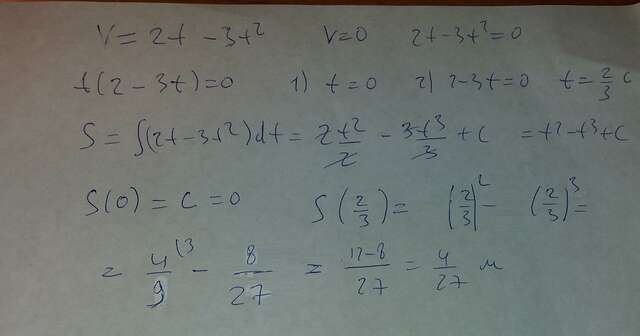 V = 2t - 3t² V=0 2t-3t²=0
t(2-3t)=0 1) t=0 2) 2-3t=0 t=2/3 c
S = ∫(2t-3t²)dt = 2t²/2 - 3t³/3 + C = t²-t³+C
S(0) = C = 0 S(2/3) = (2/3)² - (2/3)³ =
= 4/9 (3 - 8/27 = 12-8/27 = 4/27 м